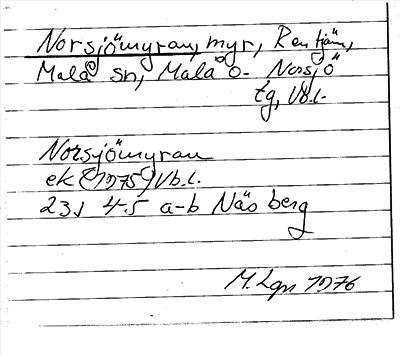 Norsjömyran, myr, Rentjärn,
Malå sn, Malå o- Norsjö
tg, Vb.l.
Norsjömyran
ek (1975) Vb.l.
23J 4-5 a-b Näsberg
M.Lgn 1976